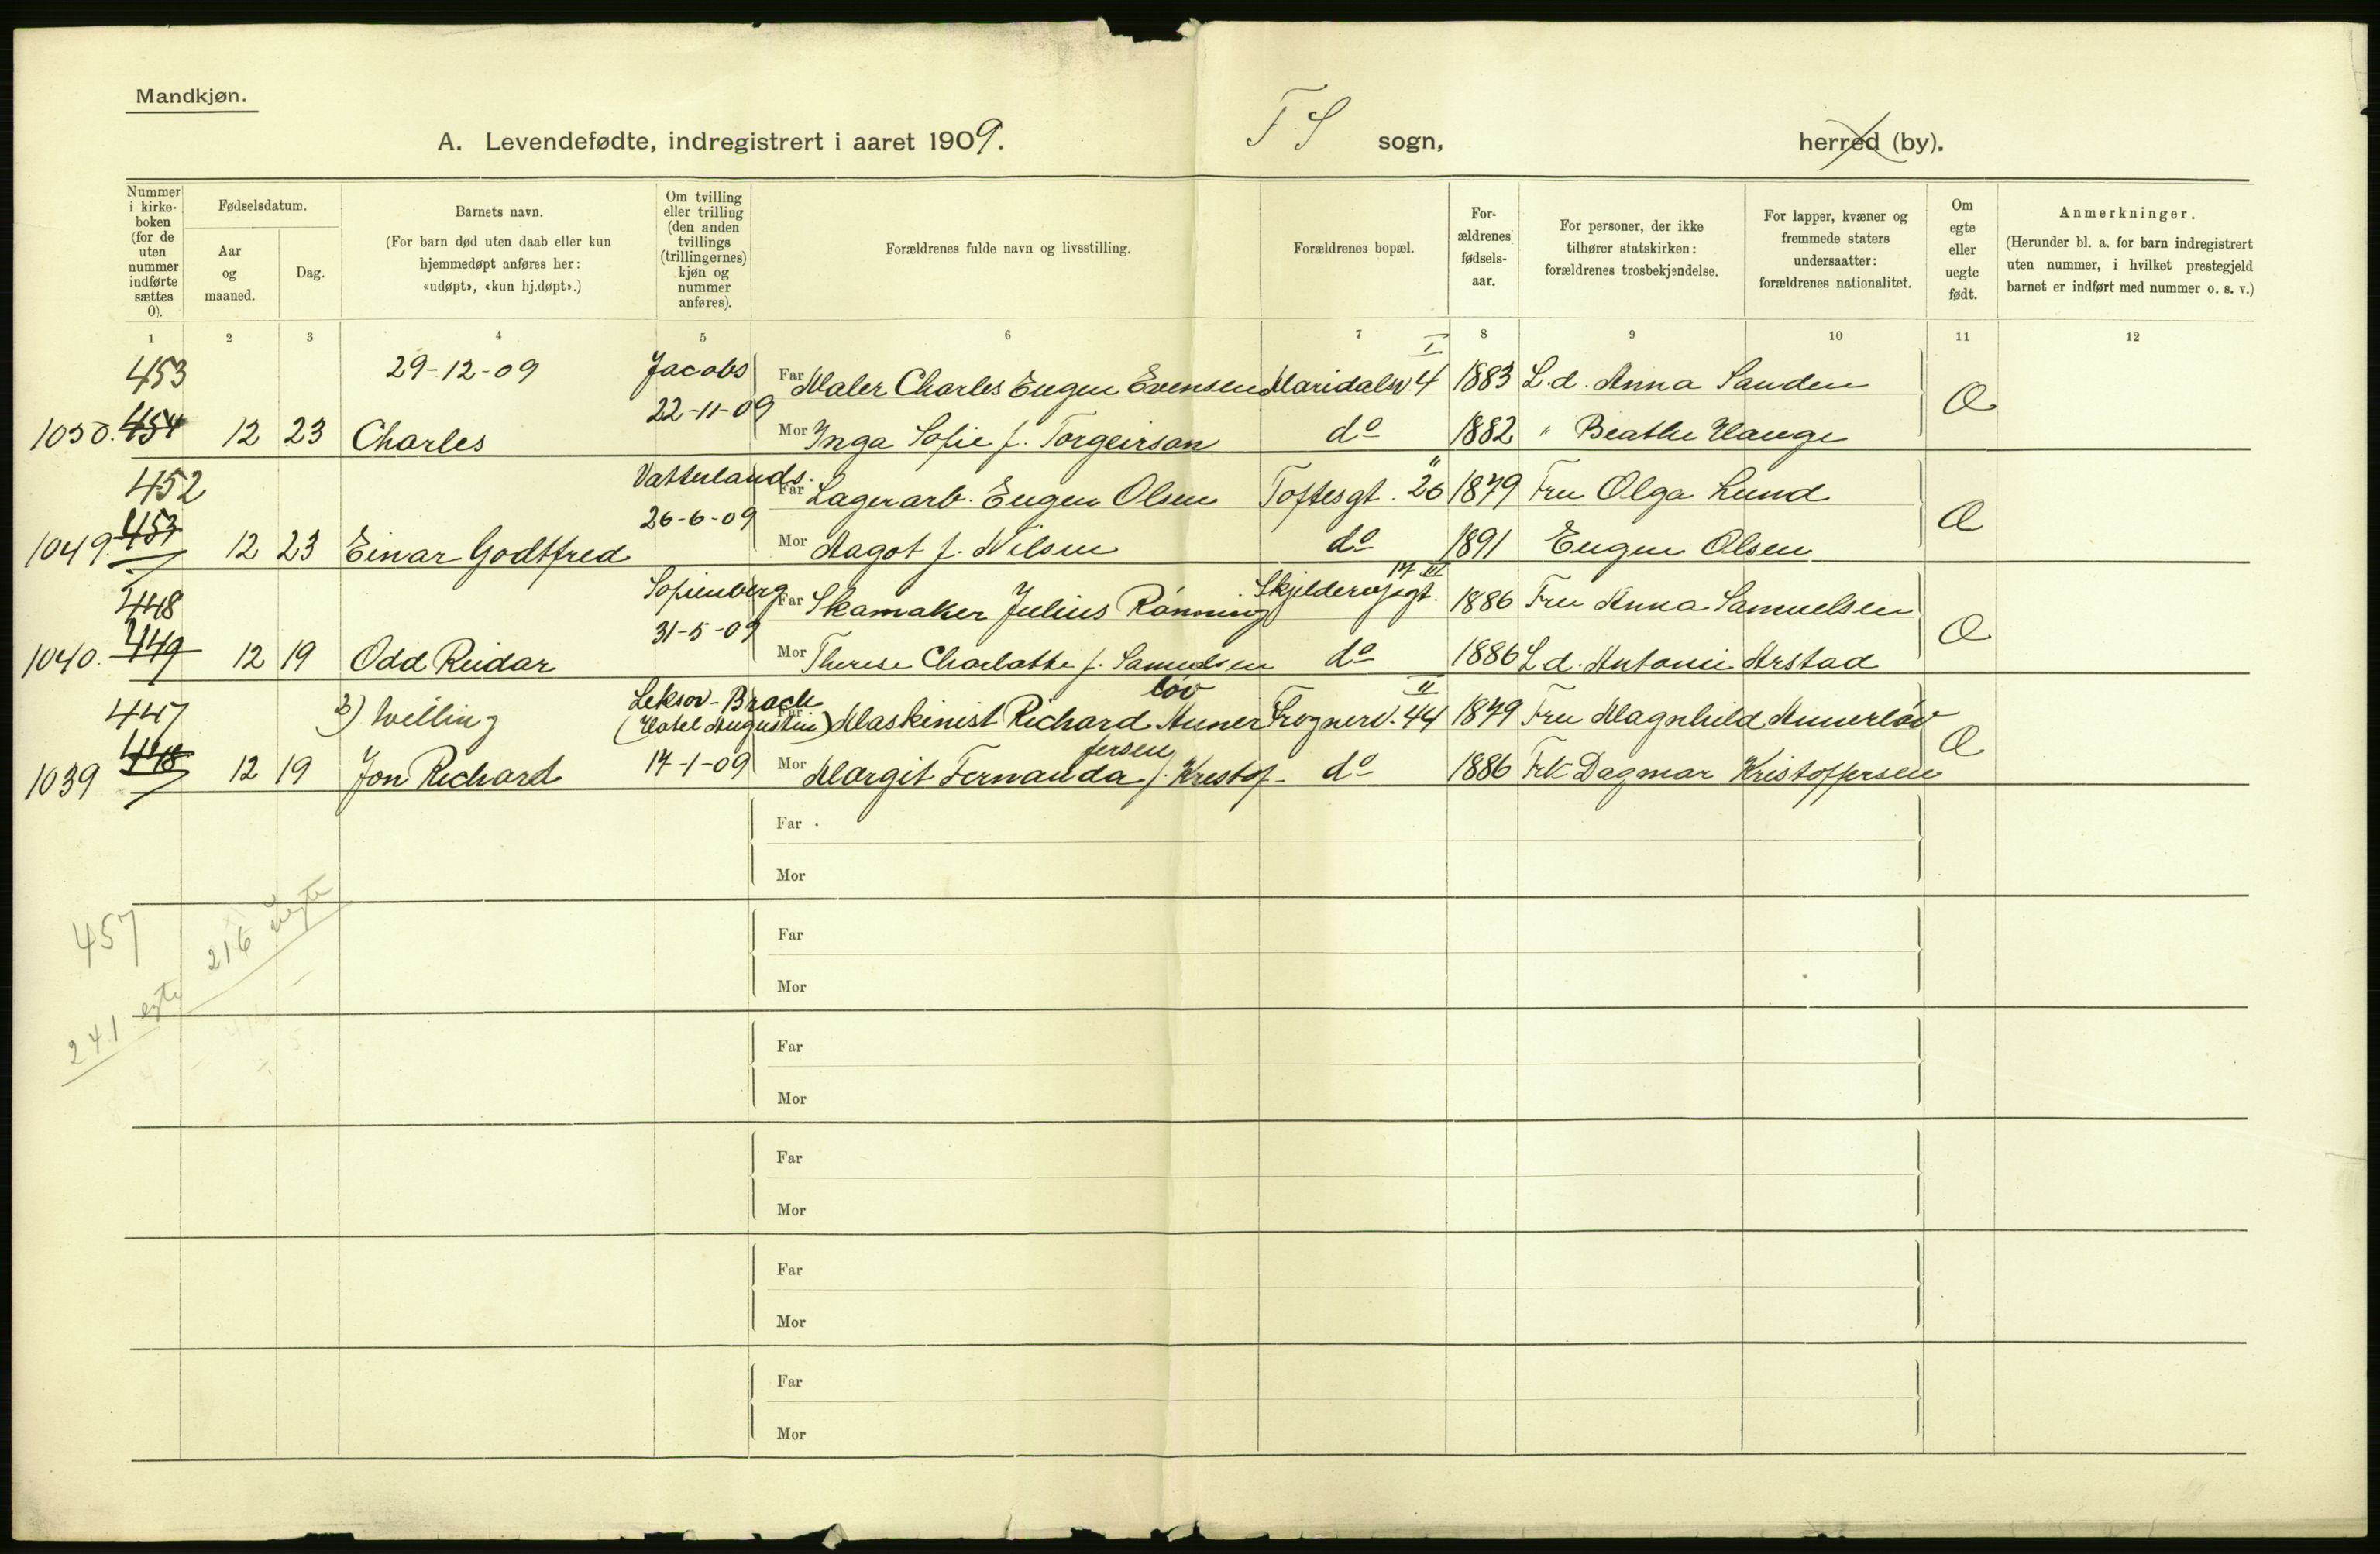 Mandkjøn.
A. Levendefødte, indregistrert i aaret 1909. F. S sogn, herred (by).
Nummer i kirke-boken (for de uten nummer indførte sættes 0).
Fødselsdatum.
Aar og maaned.
Dag.
Barnets navn.
(For barn død uten daab eller kun hjemmedøpt anføres her: «udøpt», «kun hj.døpt».)
Om tvilling eller trilling (den anden tvillings (trillingernes) kjøn og nummer anføres).
Forældrenes fulde navn og livsstilling.
Forældrenes bopæl.
For-ældrenes fødsels-aar.
For personer, der ikke tilhører statskirken: forældrenes trosbekjendelse.
For lapper, kvæner og fremmede staters undersaatter: forældrenes nationalitet.
Om egte eller uegte født.
Anmerkninger.
(Herunder bl. a. for barn indregistrert uten nummer, i hvilket prestegjeld barnet er indført med nummer o. s. v.)
1 2 3 4 5 6 7 8 9 10 11 12
453 29-12-09 Jacobs Far Maler Charles Eugen Evensen Maridalsv. 4 I 1883 L.d. Anna Sanden
1050. 454 12 23 Charles 22-11-09 Mor Inga Sofie f. Torgeirson do 1882 " Beathe Hauge
452 Vatterlands. Far Lagerarb. Eugen Olsen Toftesgt. 26 " 1879 Fru Olga Lund
1049. 453 12 23 Einar Godtfred 26-6-09 Mor Magot f. Nilsen do 1891 Eugen Olsen
448 Sofienberg Far Skomaker Julius Rønning 17 III 1886 Fru Anna Samuelsen
1040. 449 12 19 Odd Reidar 31-5-09 Mor Therese Charlotte f. Samuelsen do 1886 L.d. Antonie Arstad
447 Leksov-Brach
(Hotel Augustin) Far Maskinist Richard Amerløv Frognerv. 44 II 1879 Fru Magnhild Amerløv
1039 448 12 19 Jon Richard 17-1-09 Mor Margit Fernanda f. Kristoffersen do 1886 Frk Dagmar Kristoffersen
Far
Mor
Far
Mor
457
216 uegte
241 egte
Far
Mor
Far
Mor
Far
Mor
Far
Mor